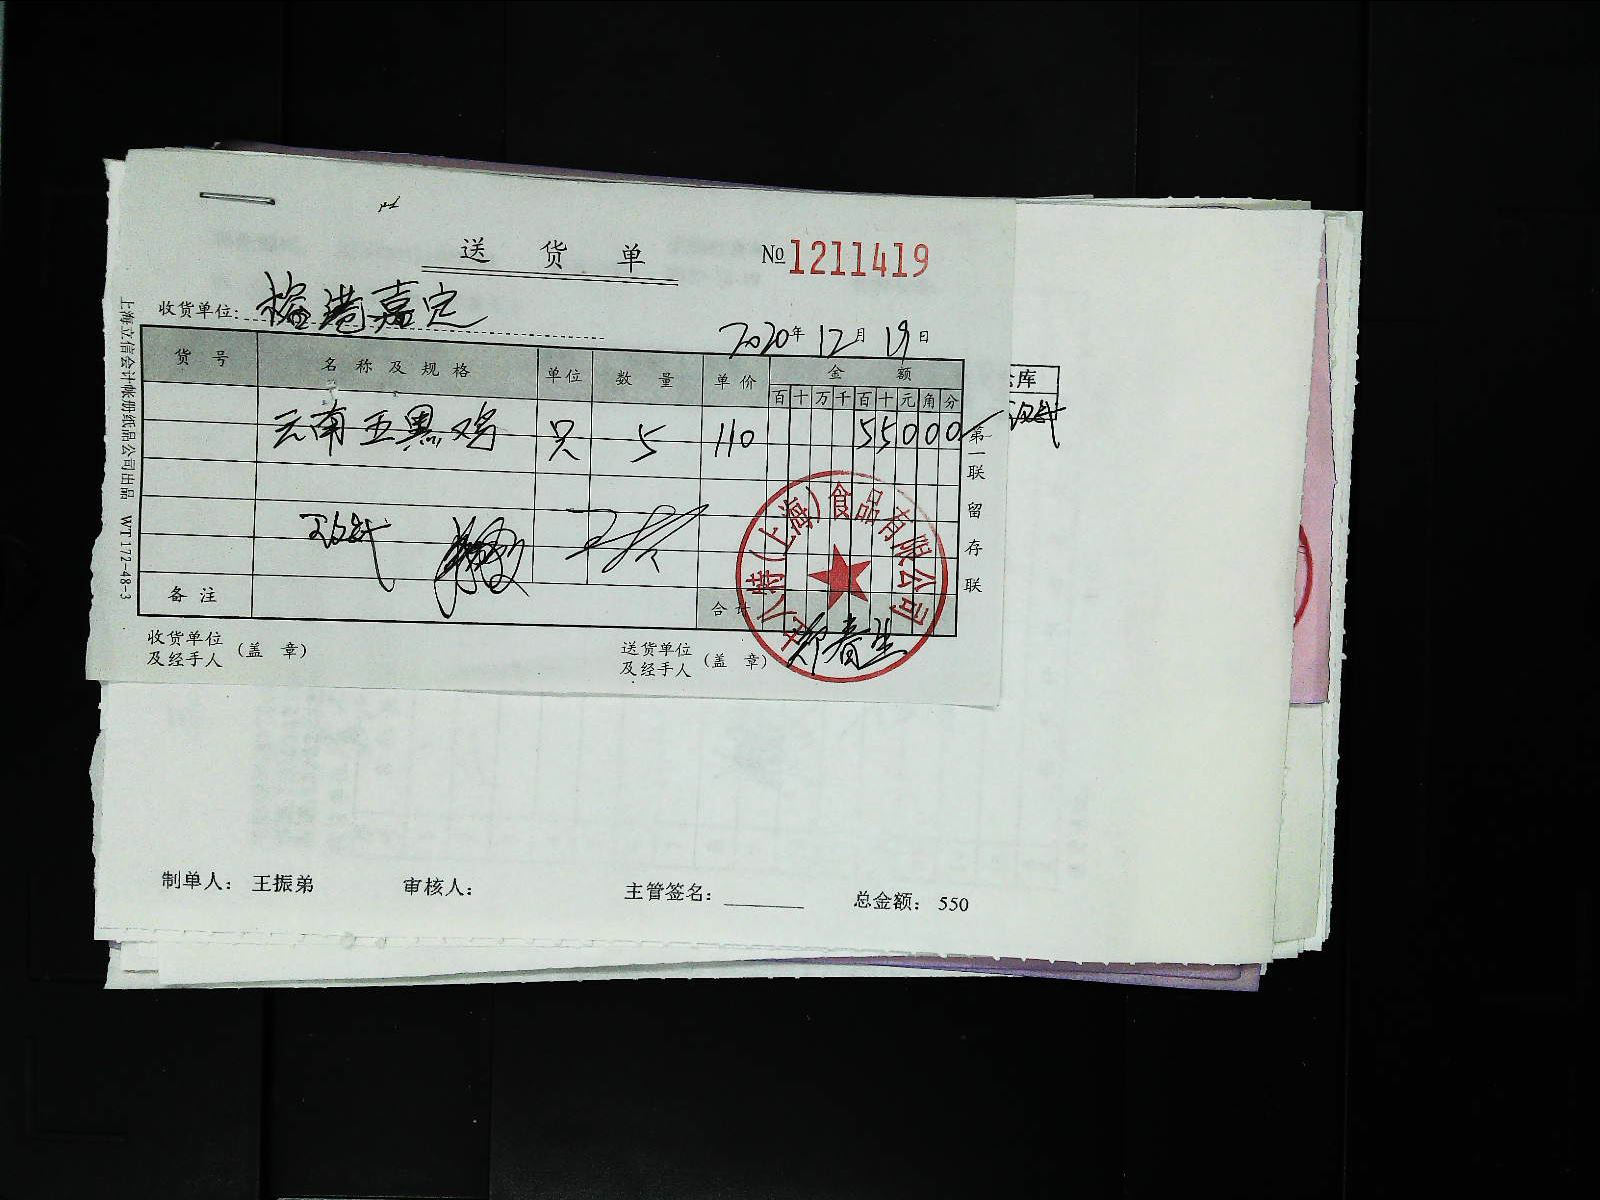 送货单 № 1211419
收货单位: 梅港嘉定
2020年 12月 19日
货号 名称及规格 单位 数量 单价 金额
百 十 万 千 百 十 元 角 分
云南五黑鸡 只 5 110 55000
备注 合计
收货单位及经手人 (盖章) 送货单位及经手人 (盖章) 郑春生
(上海)食品有限公司
第一联 留存联
上海立信会计帐册纸品公司出品 WT 172-48-3
库
制单人: 王振弟 审核人: 主管签名: 总金额: 550